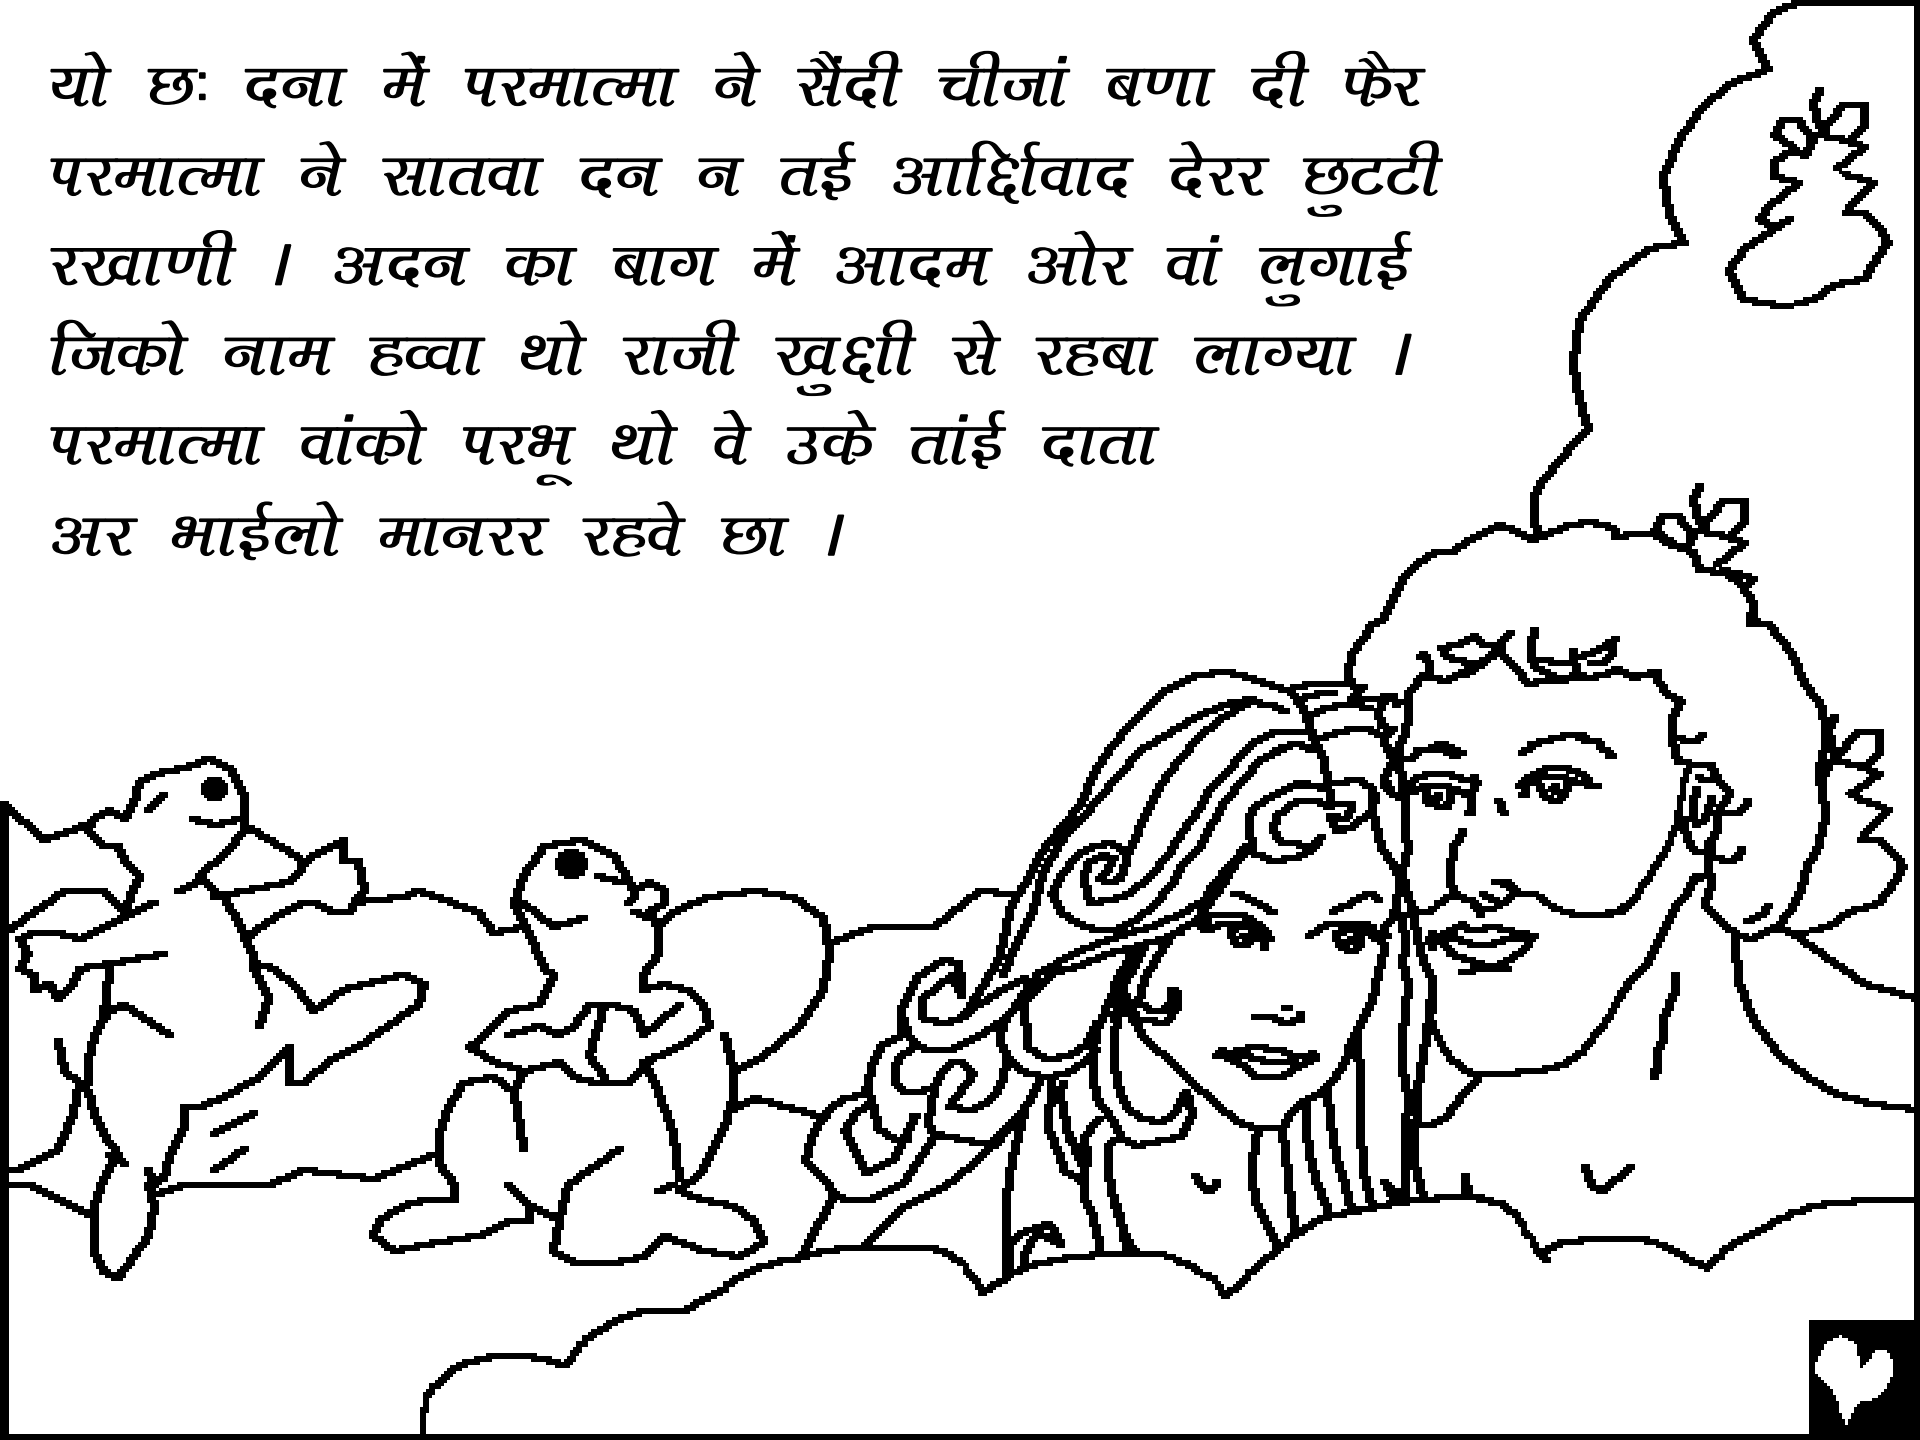 यो छः दना में परमात्मा ने सैंदी चीजां बणा दी फैर
परमात्मा ने सातवा दन न तई देरर छुटटी
रखाणी । अदन का बाग में आदम ओर वां लुगाई
जिको नाम हव्वा थो राजी से रहबा लाग्या ।
परमात्मा वांको परभू थो वे उके तांई दाता
अर भाईलो मानरर रहवे छा ।